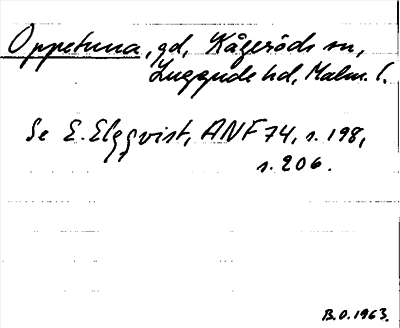 Oppetuna, gd, Kågeröds sn,
Luggude hd, Malm. l.
Se E. Elgqvist, ANF 74, s. 198,
s. 206.
B.O. 1963.